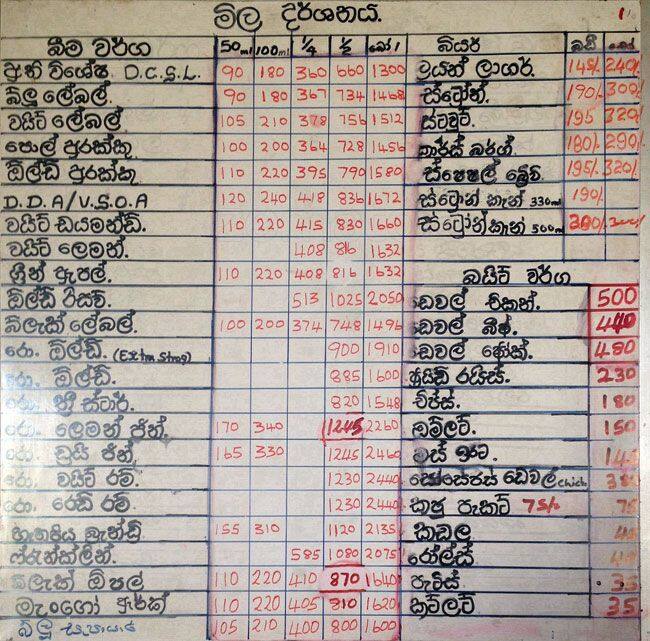 මිල දර්ශනය. 1/-
බීම වර්ග 50ml 100ml 1/4 1/2 බෝ/
අති විශේෂ D.C.S.L. 90 180 360 660 1300
බ්ලූ ලේබල්. 90 180 367 734 1468
වයිට් ලේබල් 105 210 378 756 1512
පොල් පුරක්කු 100 200 364 728 1456
ඕල්ඩ් පුරක්කු 110 220 395 790 1580
D.D.A/V.S.O.A 120 240 418 836 1672
වයිට් ඩයමන්ඩ්. 110 220 415 830 1660
වයිට් ලෙමන්. 408 816 1632
ග්‍රීන් ඇපල්. 110 220 408 816 1632
ඕල්ඩ් රිසව් 513 1025 2050
බ්ලැක් ලේබල්. 100 200 374 748 1496
රො. ඕල්ඩ්. 900 1910
රො. ඕල්ඩ්. 885 1600
රො. ත්‍රී ස්ටාර්. 820 1548
රො. ලෙමන් ජින්. 170 340 1245 2260
රො. ඩ්‍රයි ජින්. 165 330 1245 2460
රො. වයිට් රම්. 1230 2440
රො. රෙඩ් රම්. 1230 2440
බැන්ඩි 155 310 1120 2135
ෆ්රැන්ක්ලින්. 585 1080 2075
බ්ලැක් ඕපල් 110 220 410 870 1640
මැංගෝ ආරක් 110 220 405 810 1620
බ්ලූ සැපායර 105 210 400 800 1600
බියර් බඩී බෝ/
ලයන් ලාගර්. 145/. 240/.
ස්ට්‍රෝන්. 190/. 300/.
ස්ටවුට්. 195 320/.
කාර්ස් බර්ග්. 180/. 290/.
ස්පෙෂල් බ්‍රෙව්. 195/. 320/.
ස්ට්‍රොන් කෑන් 330ml 190/.
ස්ට්‍රෝන්කෑන් 500ml 300/.
බයිට් වර්ග
ඩෙවල් චිකන්. 500
ඩෙවල් බීෆ්. 440
ඩෙවල් පෝක්. 480
ෆ්‍රයිඩ් රයිස්. 230
චිප්ස්. 180
මම්ලට්. 150
මස්
සොසේජස් ඩෙවල්
කජු පැකට් 75/- 75
කඩල
රෝල්ස්
පැටිස් 35
කට්ලට් 35